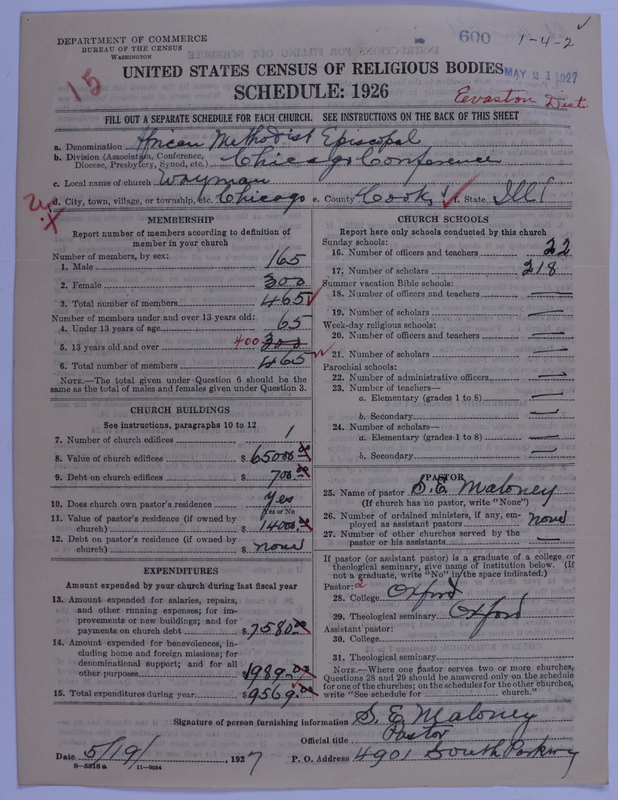 DEPARTMENT OF COMMERCE
BUREAU OF THE CENSUS
WASHINGTON
600
1-4-2
15
UNITED STATES CENSUS OF RELIGIOUS BODIES
MAY 21 1927
SCHEDULE: 1926
Evaston Dist.
FILL OUT A SEPARATE SCHEDULE FOR EACH CHURCH. SEE INSTRUCTIONS ON THE BACK OF THIS SHEET
a. Denomination African Methodist Episcopal
b. Division (Association, Conference, Diocese, Presbytery, Synod, etc.) Chicago Conference
c. Local name of church Wayman
d. City, town, village, or township, etc. Chicago e. County Cook f. State Ill
MEMBERSHIP
Report number of members according to definition of
member in your church
Number of members, by sex:
1. Male 165
2. Female 300
3. Total number of members 465
Number of members under and over 13 years old:
4. Under 13 years of age 65
5. 13 years old and over 400 300
6. Total number of members 465
NOTE.—The total given under Question 6 should be the
same as the total of males and females given under Question 3.
CHURCH BUILDINGS
See instructions, paragraphs 10 to 12
7. Number of church edifices 1
8. Value of church edifices $ 65000.00
9. Debt on church edifices $ 700.00
10. Does church own pastor's residence Yes
Yes or No
11. Value of pastor's residence (if owned by
church) $ 14000.00
12. Debt on pastor's residence (if owned by
church) $ none
EXPENDITURES
Amount expended by your church during last fiscal year
13. Amount expended for salaries, repairs,
and other running expenses; for im-
provements or new buildings; and for
payments on church debt $ 7580.00
14. Amount expended for benevolences, in-
cluding home and foreign missions; for
denominational support; and for all
other purposes 1989.00
15. Total expenditures during year $ 9569.00
CHURCH SCHOOLS
Report here only schools conducted by this church
Sunday schools:
16. Number of officers and teachers 22
17. Number of scholars 218
Summer vacation Bible schools:
18. Number of officers and teachers —
19. Number of scholars —
Week-day religious schools:
20. Number of officers and teachers —
21. Number of scholars —
Parochial schools:
22. Number of administrative officers —
23. Number of teachers—
a. Elementary (grades 1 to 8) —
b. Secondary —
24. Number of scholars—
a. Elementary (grades 1 to 8) —
b. Secondary —
PASTOR
25. Name of pastor S. E. Maloney
(If church has no pastor, write "None")
26. Number of ordained ministers, if any, em-
ployed as assistant pastors none
27. Number of other churches served by the
pastor or his assistants —
If pastor (or assistant pastor) is a graduate of a college or
theological seminary, give name of institution below. (If
not a graduate, write "No" in the space indicated.)
Pastor:
28. College Oxford
29. Theological seminary Oxford
Assistant pastor:
30. College
31. Theological seminary
NOTE.—Where one pastor serves two or more churches,
Questions 28 and 29 should be answered only on the schedule
for one of the churches; on the schedules for the other churches,
write "See schedule for ........ church."
Signature of person furnishing information S. E. Maloney
Official title Pastor
Date 5/19/, 1927 P. O. Address 4901 South Parkway
8—5318a 11—9034